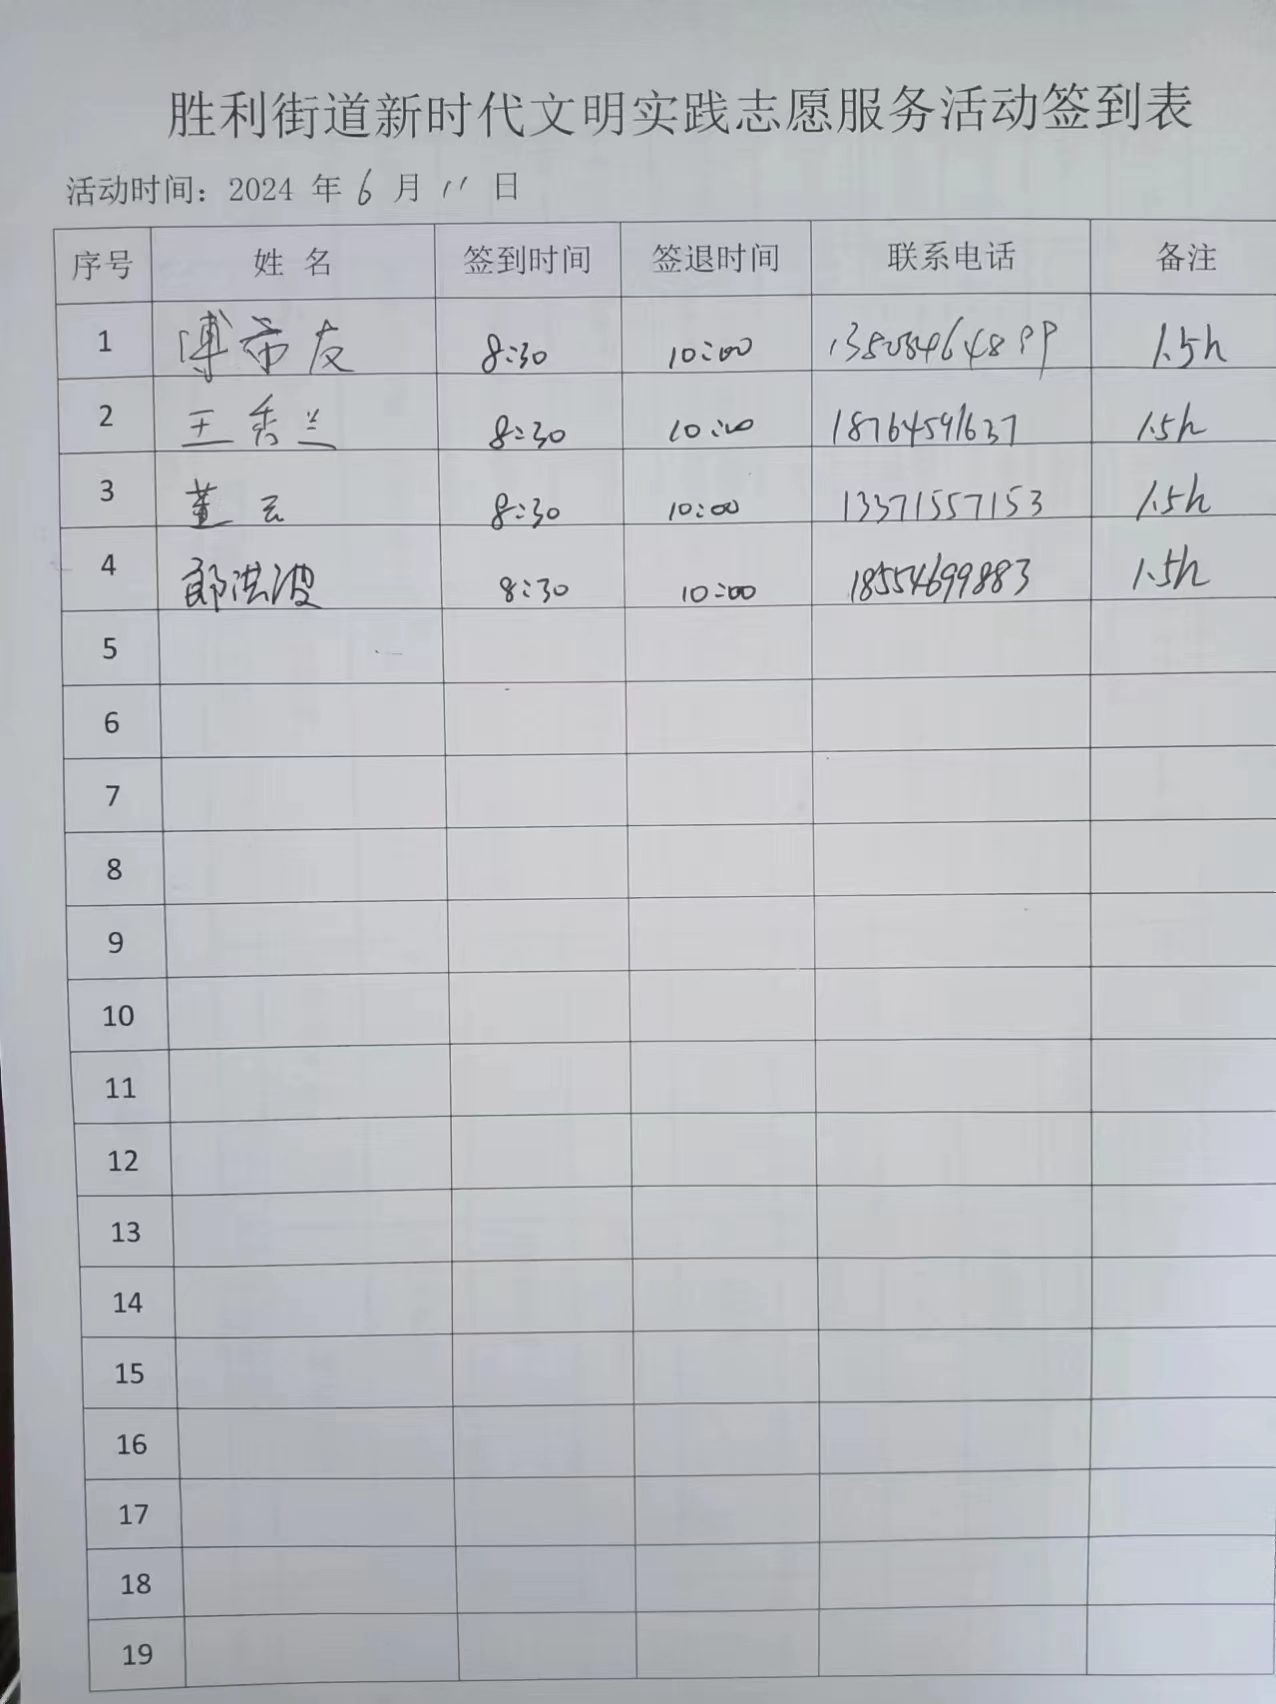 胜利街道新时代文明实践志愿服务活动签到表
活动时间：2024 年 6 月 11 日
序号 姓 名 签到时间 签退时间 联系电话 备注
1 傅希友 8:30 10:00 1.5h
2 王秀兰 8:30 10:00 18764591637 1.5h
3 董云 8:30 10:00 13371557153 1.5h
4 郎洪波 8:30 10:00 18554699883 1.5h
5
6
7
8
9
10
11
12
13
14
15
16
17
18
19